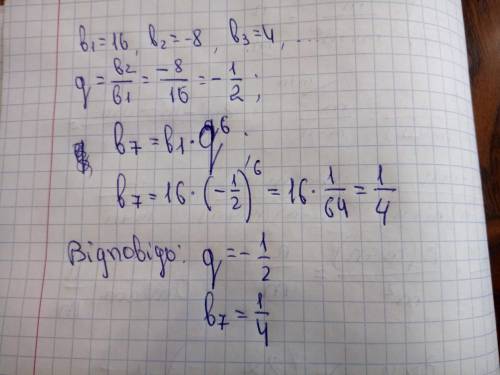 b₁=16, b₂=-8, b₃=4, ...
q = b₂/b₁ = -8/16 = -1/2;
b₇ = b₁ · q⁶.
b₇ = 16 · (-1/2)⁶ = 16 · 1/64 = 1/4
Відповідь: q = -1/2
b₇ = 1/4